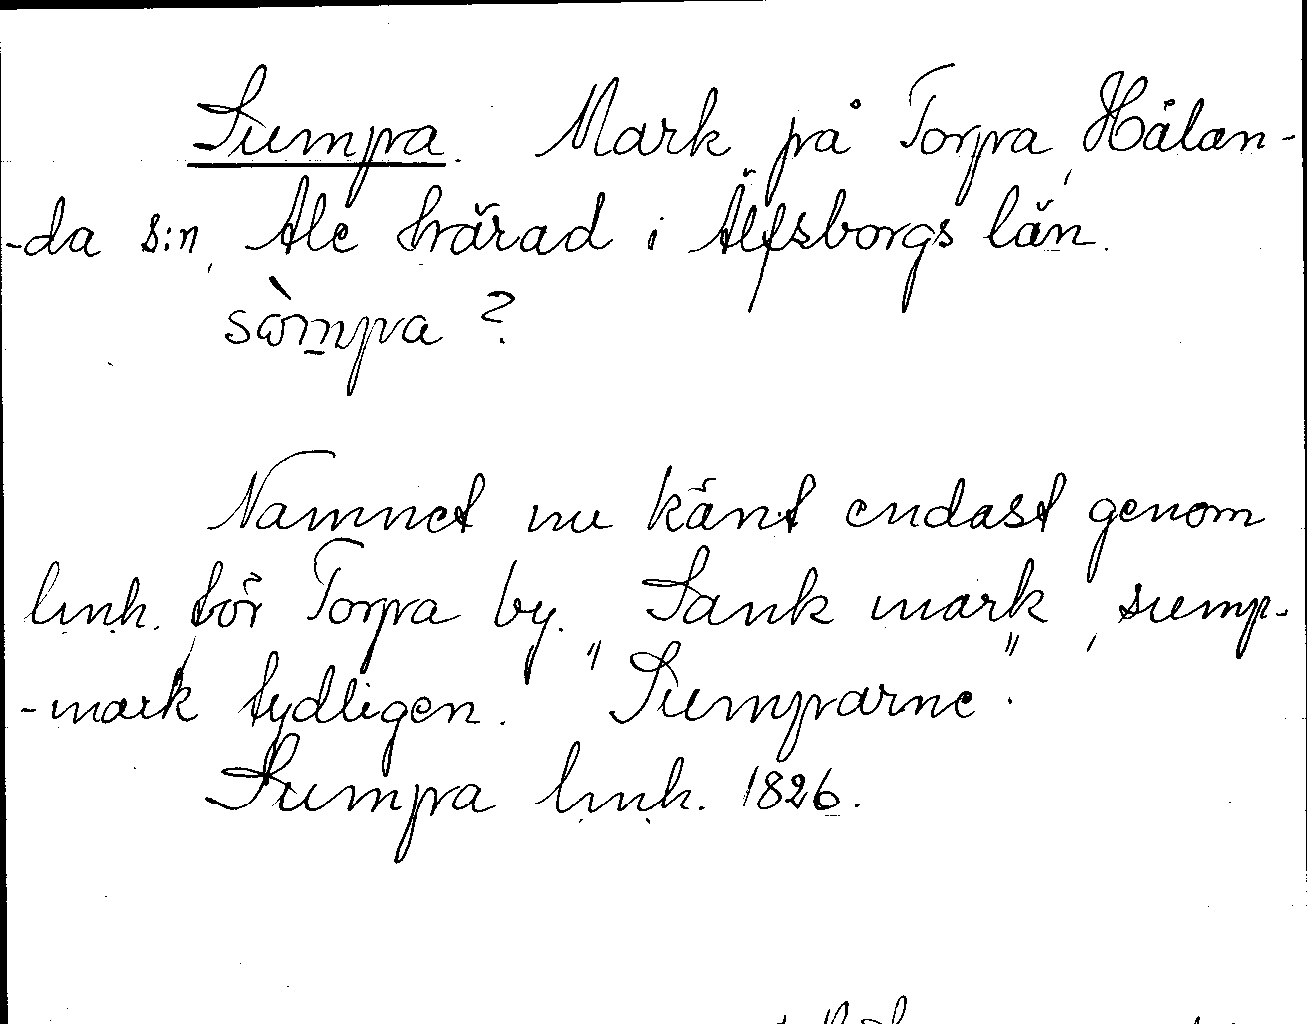 Sumpa. Mark på Torpa, Hålan-
-da s:n, Ale härad i Älfsborgs län.
sòmpa ?
Namnet nu känt endast genom
lmh. för Torpa by. "Sank mark", sump-
-mark tydligen. Sumparne.
Sumpa lmh. 1826.